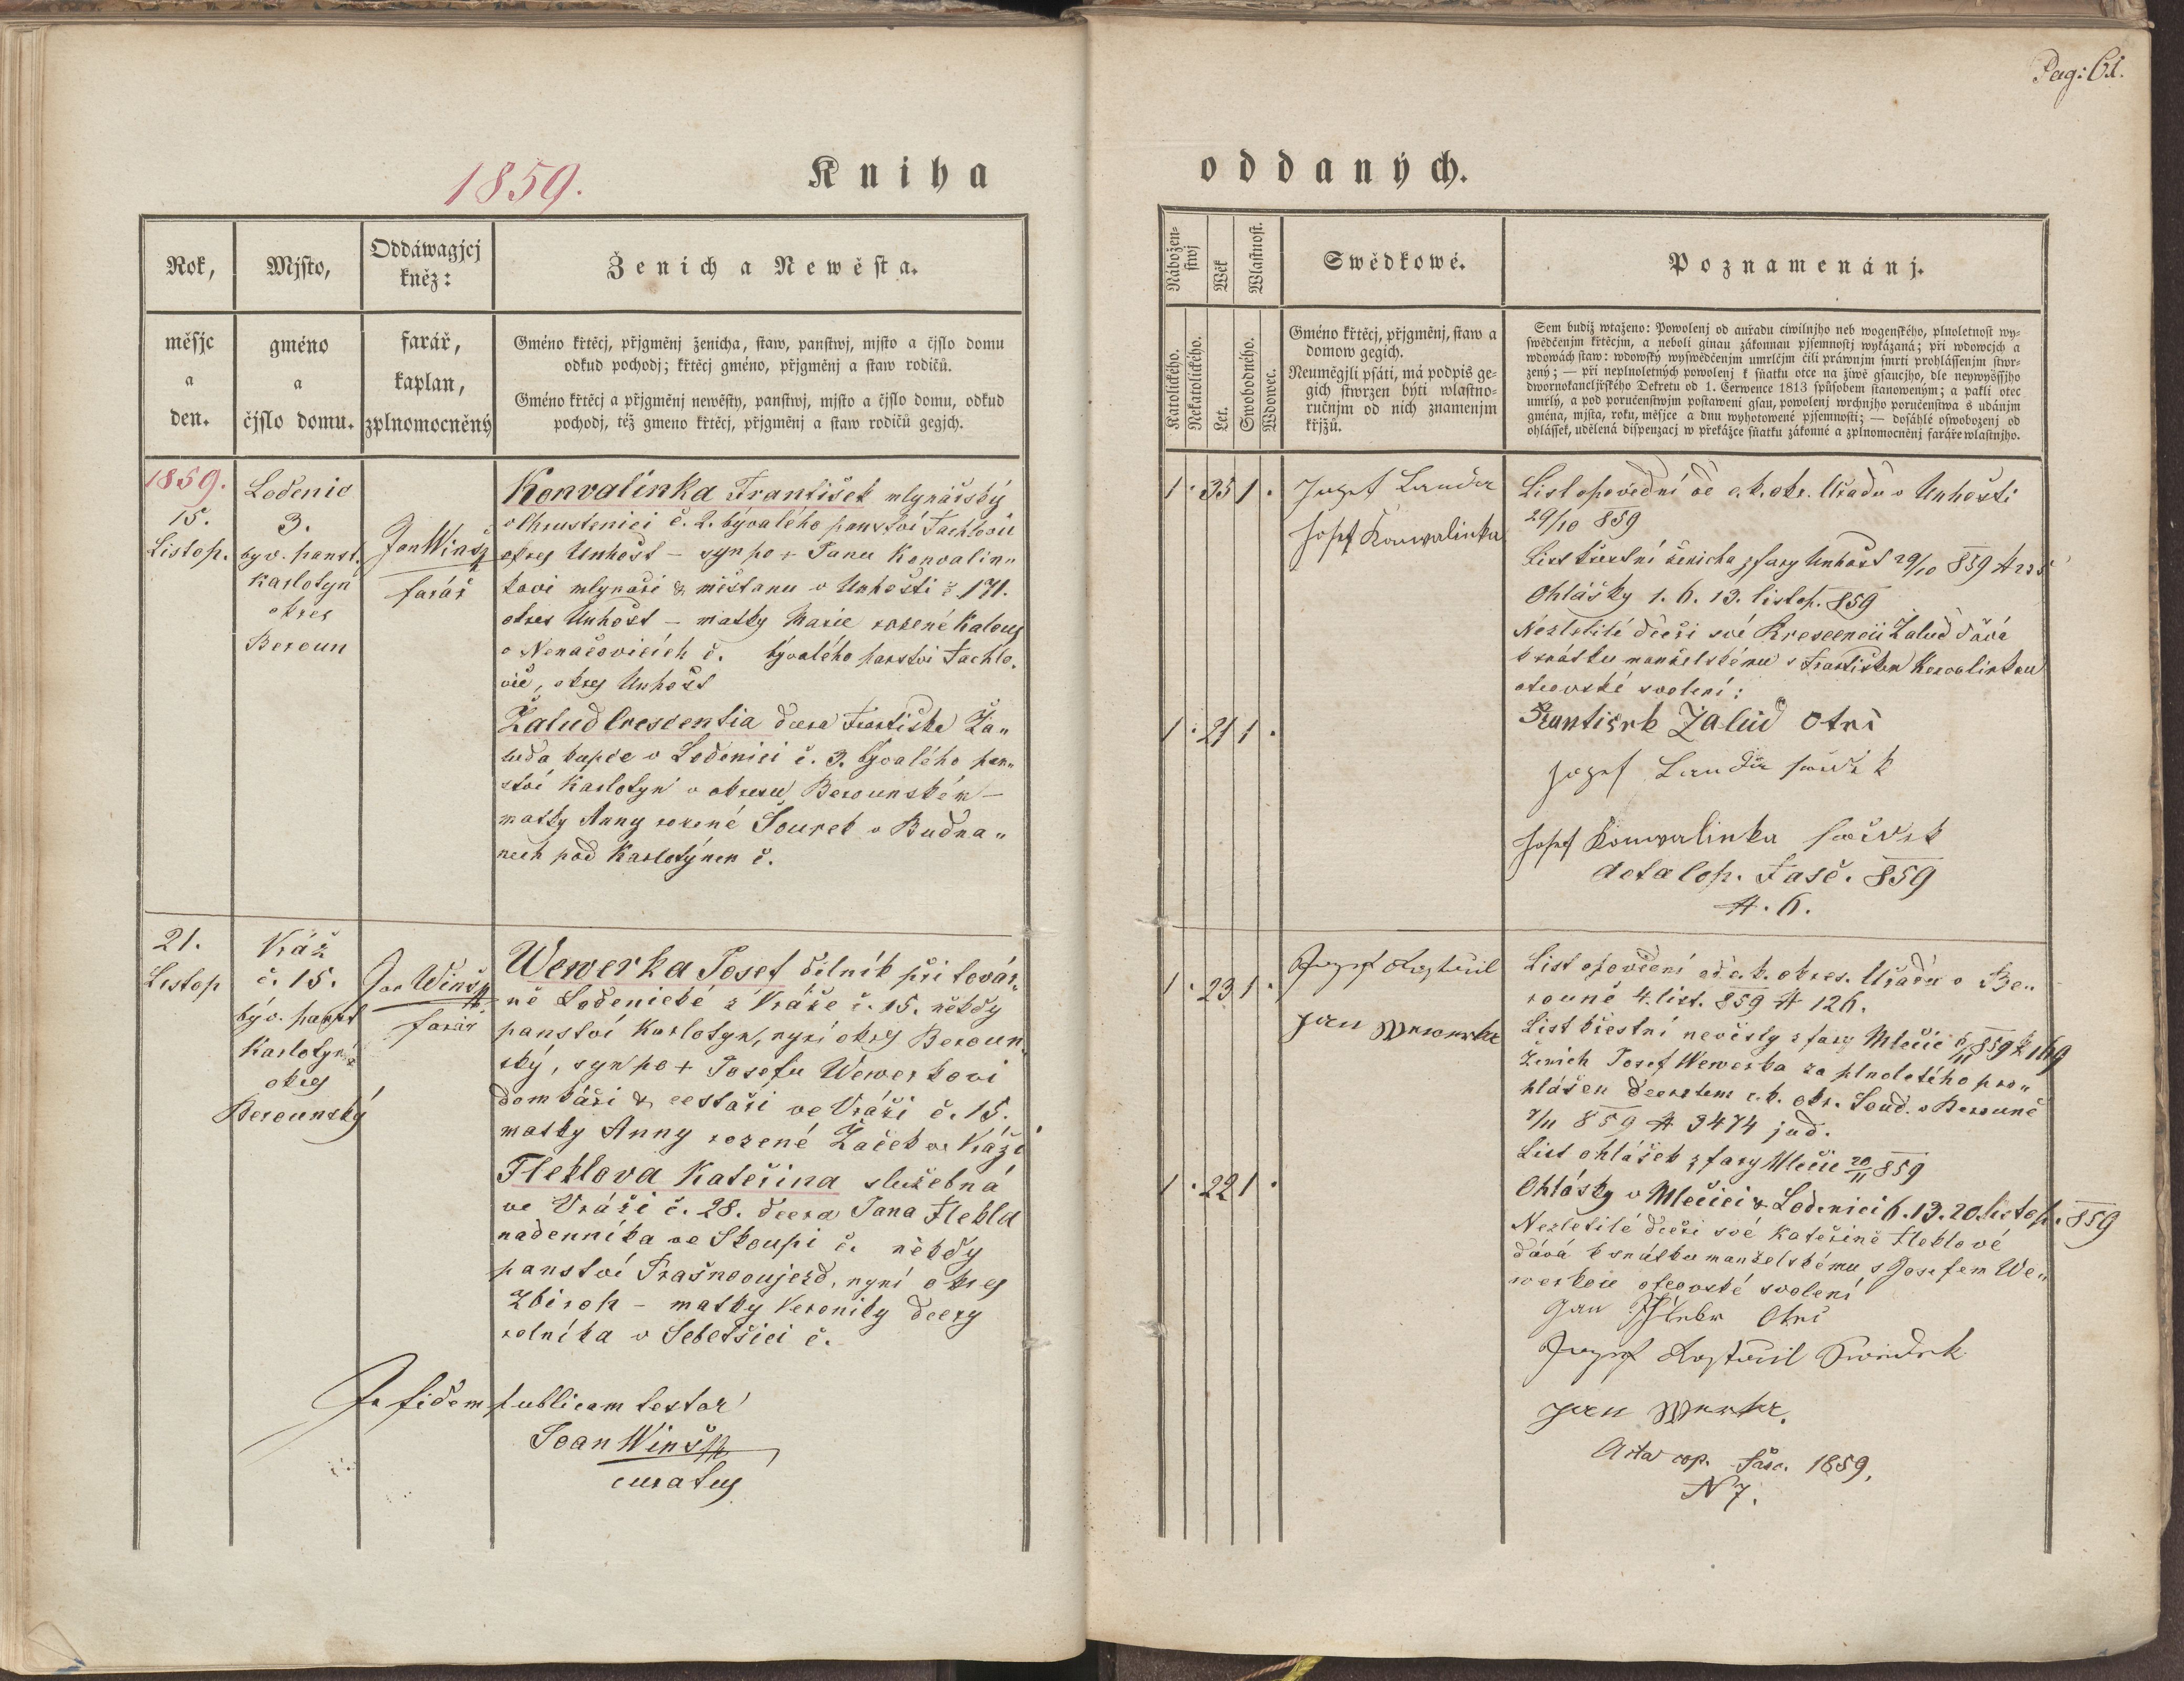 Pag: 61.
1859.
Kniha
oddaných.
Rok,
měsjc
a
den.
Mjsto,
gméno
a
čjslo domu.
Oddáwagjcj
kněz:
farář,
kaplan,
zplnomocněný
Ženich a Newěsta.
Gméno křtěcj, přjgměnj ženicha, staw, panstwj, mjsto a čjslo domu
odkud pochodj; křtěcj gméno, přjgměnj a staw rodičů.
Gméno křtěcj a přjgměnj newěsty, panstwj, mjsto a čjslo domu, odkud
pochodj, též gmeno křtěcj, přjgměnj a staw rodičů gegjch.
Nábožen-
stwj
Wěk
Wlastnost.
Katolického.
Nekatolického.
Let.
Swobodného.
Wdowec.
Swědkowé.
Gméno křtěcj, přjgměnj, staw a
domow gegich.
Neuměgjli psáti, má podpis ge-
gich stwrzen býti wlastno-
ručnjm od nich znamenjm
křjžů.
Poznamenánj.
Sem budiž wtaženo: Powolenj od auřadu ciwilnjho neb wogenského, plnoletnost wy-
swědčenjm křtěcjm, a neboli ginau zákonnau pjsemnostj wykázaná; při wdowcjch a
wdowách staw: wdowský wyswědčenjm umrlčjm čili práwnjm smrti prohlássenjm stwr-
zený; — při neplnoletných powolenj k sňatku otce na žiwě gsaucjho, dle neywyšssjho
dwornokancljřského Dekretu od 1. Čerwence 1813 spůsobem stanoweným; a pakli otec
umrlý, a pod poručenstwjm postaweni gsau, powolenj wrchnjho poručenstwa s udánjm
gména, mjsta, roku, měsjce a dnu wyhotowené pjsemnosti; — dosáhlé oswobozenj od
ohlássek, udělená dispenzacj w překážce sňatku zákonné a zplnomocněnj faráře wlastnjho.
1859.
15.
Listop.
Lodenic
3.
byv. panst.
Karlotyn
okres
Beroun
Jan Winš
farář
Konvalinka František mlynářský
v Chrustenici č. 2. bývalého panství Tachlovic
okres Unhošt — syn po + Janu Konvalin"
kovi mlynáři & měšťanu v Unhošti č. 171.
okres Unhošt — matky Marie rozené Kalous
v Nenačovicích č. bývalého panství Tachlo,
vic, okres Unhošt
Žalud Crescentia dcera Františka Ža„
luda kupce v Lodenici č. 3. bývalého pan„
ství Karlotyn v okresu Berounském —
matky Anny rozené Šourek v Budňa„
nech pod Karlotýnem č.
1 . 35 1 .
1 . 21 1 .
Jozef Lauda
Josef Konwalinka
List opovědní od c. k. okr. Úřadu v Unhošti
29/10 859
List křestní ženicha z fary Unhošt 29/10 859
Ohlášky 1. 6. 13. listop. 859
Nezletilé dceři své Krescencii Žalud dává
k snátku manželskému s Františkem Konvalinkou
otcovské svolení:
František Žalud otec
Jozef Lauda
Josef Konwalinka
Acta Cop. Fasc. 859
N. 6.
21.
Listop
Vráž
č. 15.
býv. panst
Karlotyn
okres
Berounský
Jan Winš
farář
Wewerka Josef dělník při továr„
ně Lodenické z Vráže č. 15. někdy
panství Karlotyn, nyní okres Beroun„
ský, syn po + Josefu Wewerkovi
domkáři & cestáři ve Vráži č. 15.
matky Anny rozené Žáček ve Vráži
Fleklova Kateřina služebná
ve Vráži č. 28. dcera Jana Flekla
nadenníka ve Skoupi č. někdy
panství Prašnoaujezd, nyní okres
Zbiroh — matky Veroniky dcery
rolníka v Sebečicí č.
1 . 23 1 .
1 . 22 1 .
Jan Wewerka
List opovědní od c. k. okres. Úřadu v Be„
rouně 4. list. 859 N 126.
List křestní nevěsty z fary Mlečic 6/11 859 N 169
Ženich Josef Wewerka za plnoletého pro„
hlášen decretem c. k. okr. Soud. v Berouně
7/11 859 N 3474 jud.
List ohlášek z fary Mlečic 20/11 859
Ohlášky v Mlečici & Lodenici 6. 13. 20. listop. 859
Nezletilé dceři své Kateřině Fleklové
dává k snátku manželskému s Josefem We„
werkou otcovské svolení
Jan
Jan
Acta cop. Fasc. 1859.
N 7.
In fidem publicam testor
Joan Winš
curatus